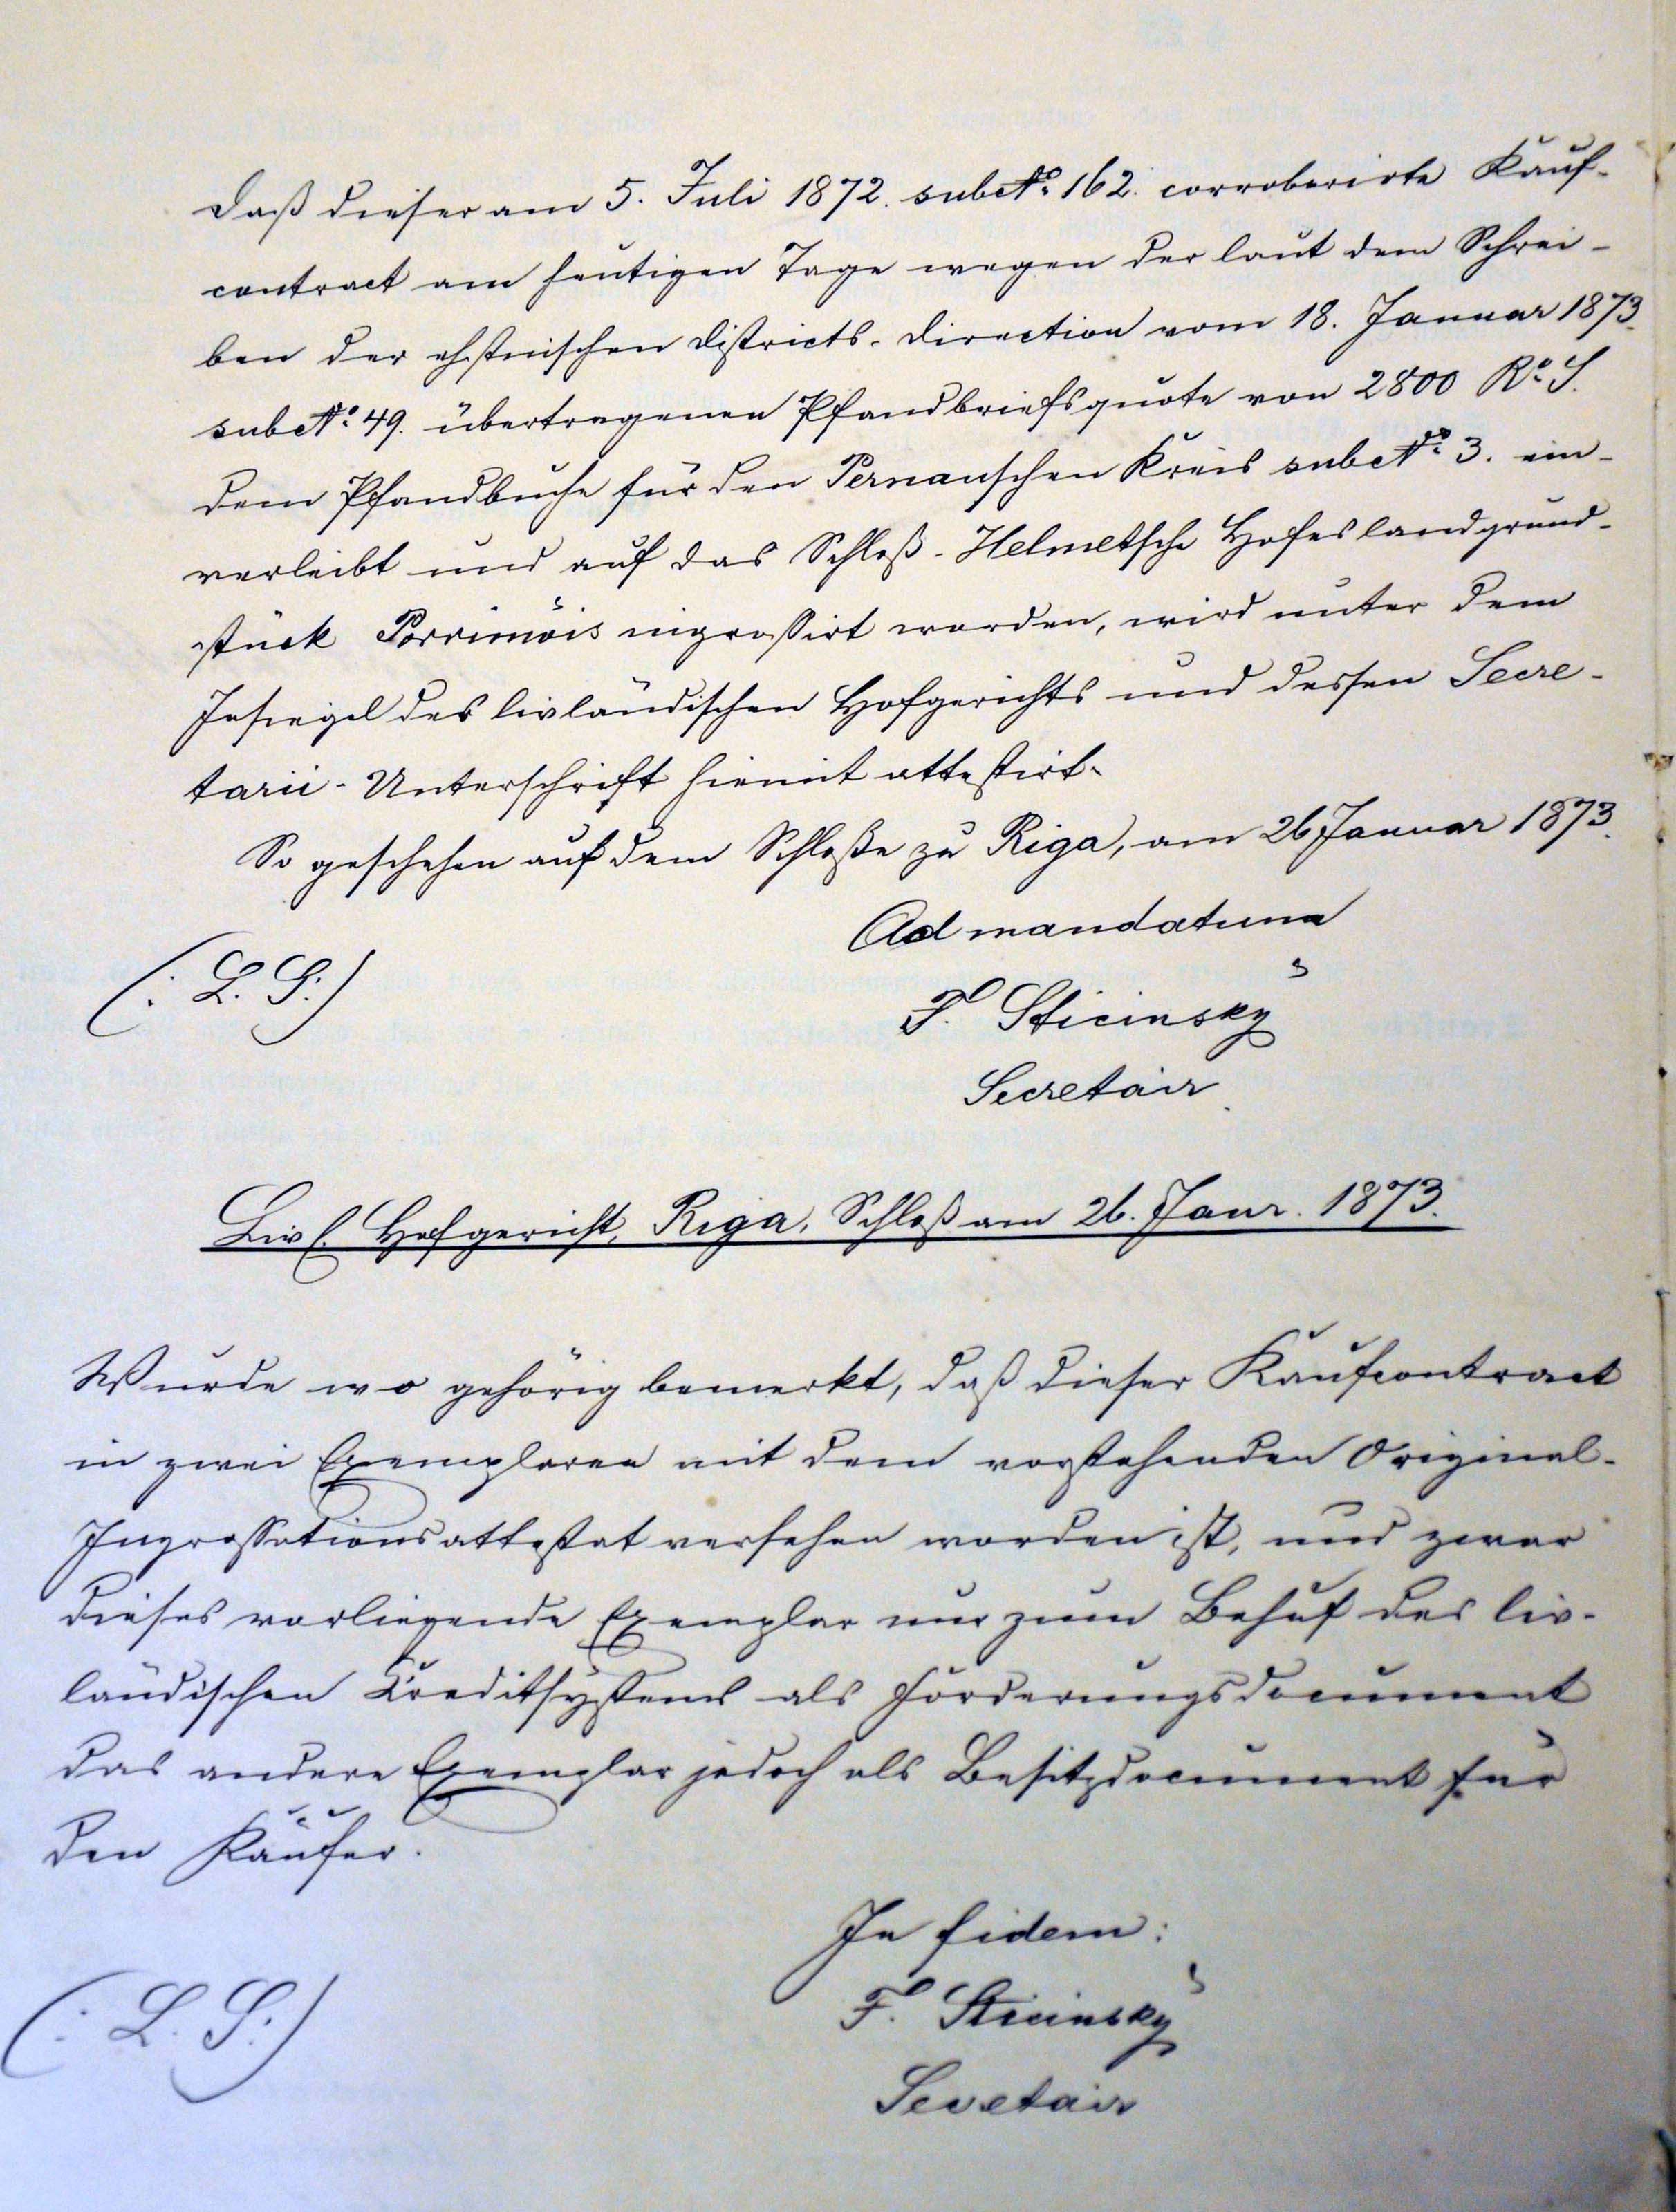 Daß dieser am 5. Juli 1872. sub No. 162. corroborirte Kauf-
contract am heutigen Tage wegen der laut dem Schrei-
ben der ehstnischen Districts-Direction vom 18. Januar 1873.
sub No. 49. übertragenen Pfandbriefsquote von 2800 Ro. S.
dem Pfandbuche für den Pernauschen Kreis sub No. 3. ein-
verleibt und auf das Schloß-Helmetsche Hofeslandgrund-
stück Porrimois ingrossirt worden, wird unter dem
Insiegel des livländischen Hofgerichts und dessen Secre-
tarii-Unterschrift hiemit attestirt.
So geschehen auf dem Schloße zu Riga, am 26 Januar 1873.
Ad mandatum
(: L. S:)
F. Sticinsky
Secretair
Livl. Hofgericht, Riga, Schloß am 26. Janr. 1873.
Wurde wo gehörig bemerkt, daß dieser Kaufcontract
in zwei Exemplaren mit dem vorstehenden Original-
Ingrossationsattestat versehen worden ist, und zwar
dieses vorliegende Exemplar nur zum Behuf des liv-
ländischen Creditsystems als Forderungsdocument
das andere Exemplar jedoch als Besitzdocument für
den Käufer.
In fidem:
(: L. S:)
F. Sticinsky
Secretair